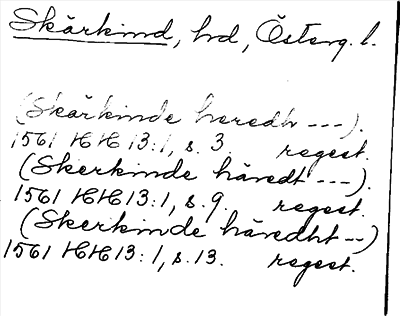 Skärkind, hd, Österg. l.
(Skärkinde heredh ---).
1561 HH 13:1, s. 3. regest.
(Skerkinde häredt ---).
1561 HH 13:1, s. 9. regest.
(Skerkinde häredht --)
1561 HH 13:1, s. 13. regest.